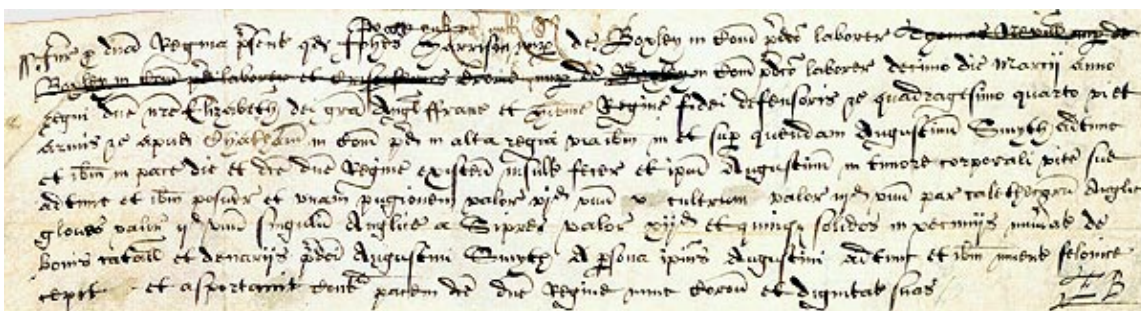 Iur p dna Regina psent qd Johes Harrison nup de Boxley in Com pdco laborer Thomas nup de
Boxley in Com pdco laborer et nup de Boxley in Com pdco laborer decimo die Marcii anno
regni dne nre Elizabeth dei gra Angl ffranc et Hibnie Regine fidei defensoris &c quadragesimo quarto vi et
armis &c apud Chatham in Com pdco in alta regia via ibm in et sup quendam Augustinu Smyth adtunc
et ibm in pace dei et dce dne Regine existen insult fecer et ipm Augustinu in timore corporali vite sue
adtunc et ibm posuer et unam pugionem valor vjd unu cultrum valor iijd unu par Anglice
gloves valor ijd unu singulu Anglice a Sipres valor xijd et quinq solidos in pecuniis numeratis de
bonis catall et denariis pdci Augustini Smyth A psona ipius Augustini adtunc et ibm invent felonice
cepit et asportavit contr pacem dce dne Regine nunc Coron et dignitat suas